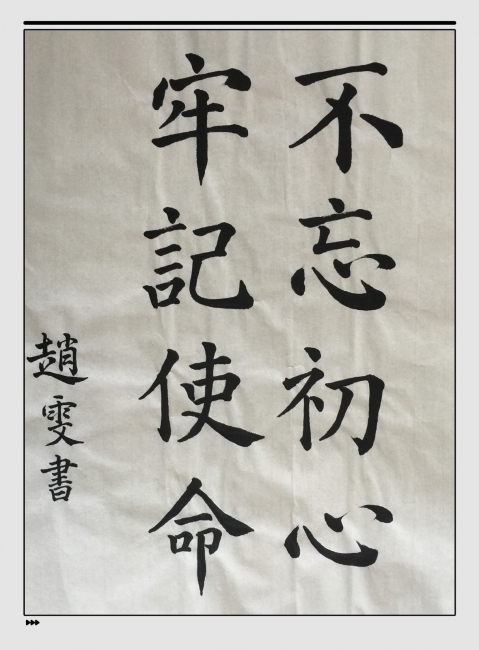 不忘初心
牢記使命
趙雯書